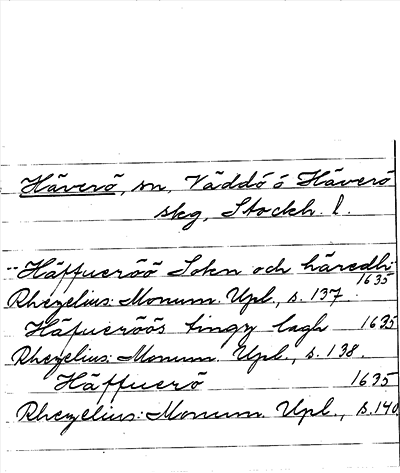 Häverö, sn, Väddö ö Häverö
skg, Stockh. l.
-- Häffueröö Sokn och häredh:
1635
Rhezelius: Monum. Upl., s. 137.
Häfueröös tingz lagh 1635
Rhezelius: Monum. Upl., s. 138.
Häffuerö 1635
Rhezelius: Monum. Upl., s. 140